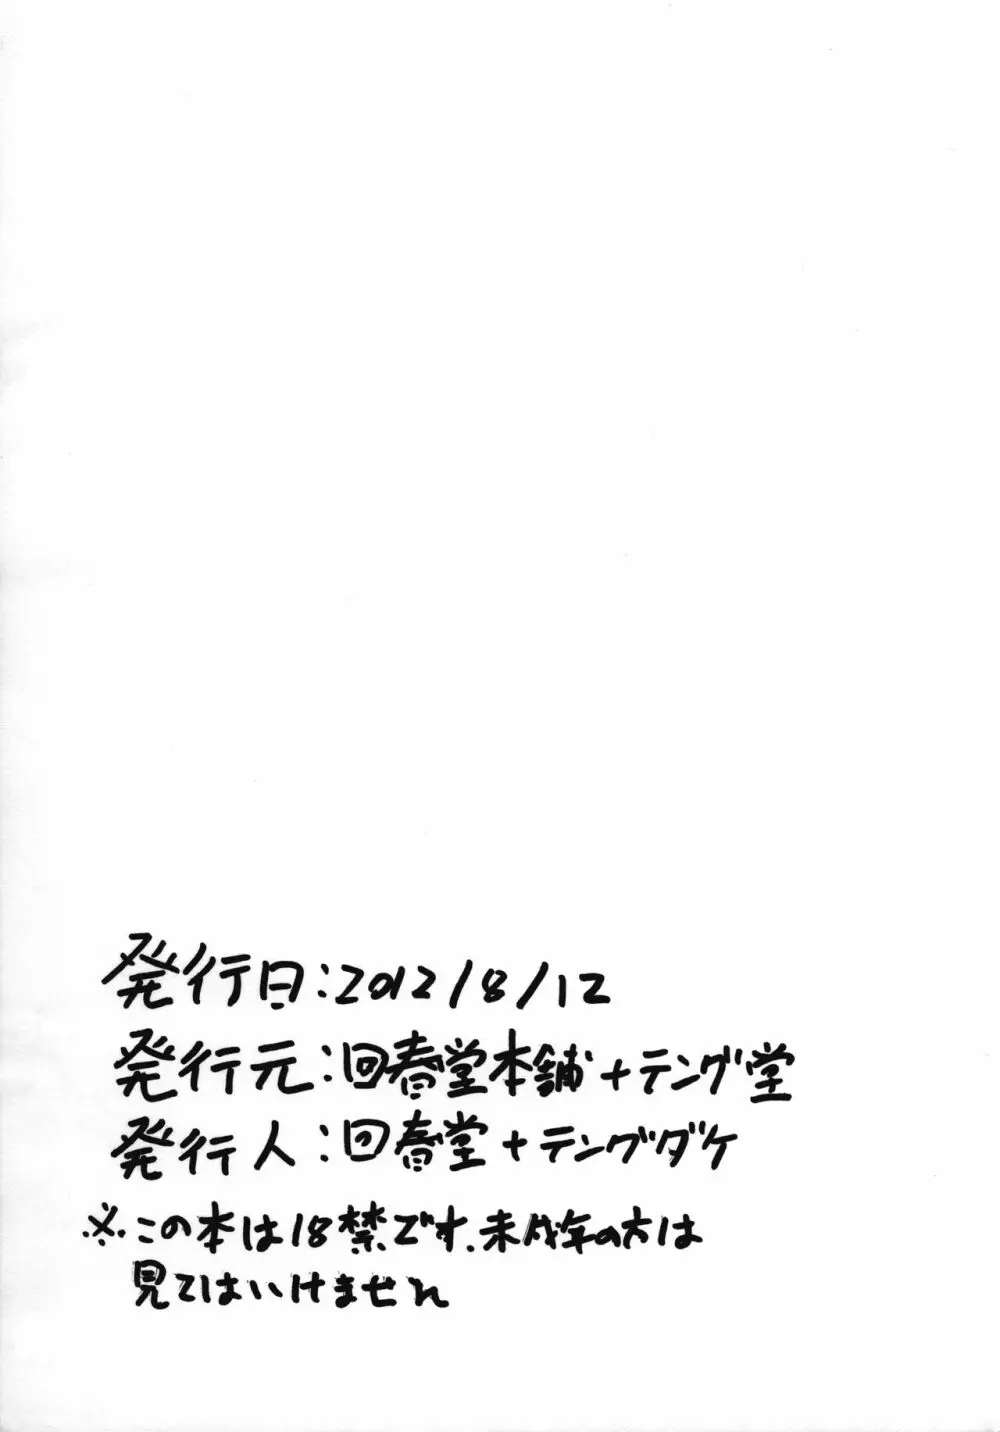 発行日:2012/8/12
発行元:回春堂本舗+テング堂
発行人:回春堂+テングダケ
※この本は18禁です.未成年の方は
見てはいけません